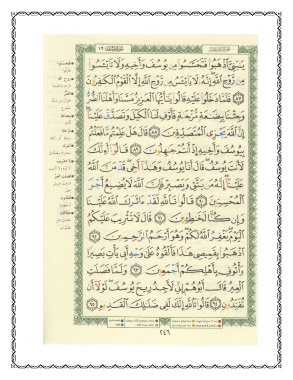 يَٰبَنِيَّ ٱذۡهَبُواْ فَتَحَسَّسُواْ مِن يُوسُفَ وَأَخِيهِ وَلَا تَاْيۡـَٔسُواْ
مِن رَّوۡحِ ٱللَّهِۖ إِنَّهُۥ لَا يَاْيۡـَٔسُ مِن رَّوۡحِ ٱللَّهِ إِلَّا ٱلۡقَوۡمُ ٱلۡكَٰفِرُونَ
٨٧ فَلَمَّا دَخَلُواْ عَلَيۡهِ قَالُواْ يَٰٓأَيُّهَا ٱلۡعَزِيزُ مَسَّنَا وَأَهۡلَنَا ٱلضُّرُّ
وَجِئۡنَا بِبِضَٰعَةٖ مُّزۡجَىٰةٖ فَأَوۡفِ لَنَا ٱلۡكَيۡلَ وَتَصَدَّقۡ عَلَيۡنَآۖ
إِنَّ ٱللَّهَ يَجۡزِي ٱلۡمُتَصَدِّقِينَ ٨٨ قَالَ هَلۡ عَلِمۡتُم مَّا فَعَلۡتُم
بِيُوسُفَ وَأَخِيهِ إِذۡ أَنتُمۡ جَٰهِلُونَ ٨٩ قَالُوٓاْ أَءِنَّكَ
لَأَنتَ يُوسُفُۖ قَالَ أَنَا۠ يُوسُفُ وَهَٰذَآ أَخِيۖ قَدۡ مَنَّ ٱللَّهُ
عَلَيۡنَآۖ إِنَّهُۥ مَن يَتَّقِ وَيَصۡبِرۡ فَإِنَّ ٱللَّهَ لَا يُضِيعُ أَجۡرَ
ٱلۡمُحۡسِنِينَ ٩٠ قَالُواْ تَٱللَّهِ لَقَدۡ ءَاثَرَكَ ٱللَّهُ عَلَيۡنَا
وَإِن كُنَّا لَخَٰطِـِٔينَ ٩١ قَالَ لَا تَثۡرِيبَ عَلَيۡكُمُ
ٱلۡيَوۡمَۖ يَغۡفِرُ ٱللَّهُ لَكُمۡۖ وَهُوَ أَرۡحَمُ ٱلرَّٰحِمِينَ ٩٢
ٱذۡهَبُواْ بِقَمِيصِي هَٰذَا فَأَلۡقُوهُ عَلَىٰ وَجۡهِ أَبِي يَأۡتِ بَصِيرٗا
وَأۡتُونِي بِأَهۡلِكُمۡ أَجۡمَعِينَ ٩٣ وَلَمَّا فَصَلَتِ
ٱلۡعِيرُ قَالَ أَبُوهُمۡ إِنِّي لَأَجِدُ رِيحَ يُوسُفَۖ لَوۡلَآ أَن
تُفَنِّدُونِ ٩٤ قَالُواْ تَٱللَّهِ إِنَّكَ لَفِي ضَلَٰلِكَ ٱلۡقَدِيمِ ٩٥
٢٤٦